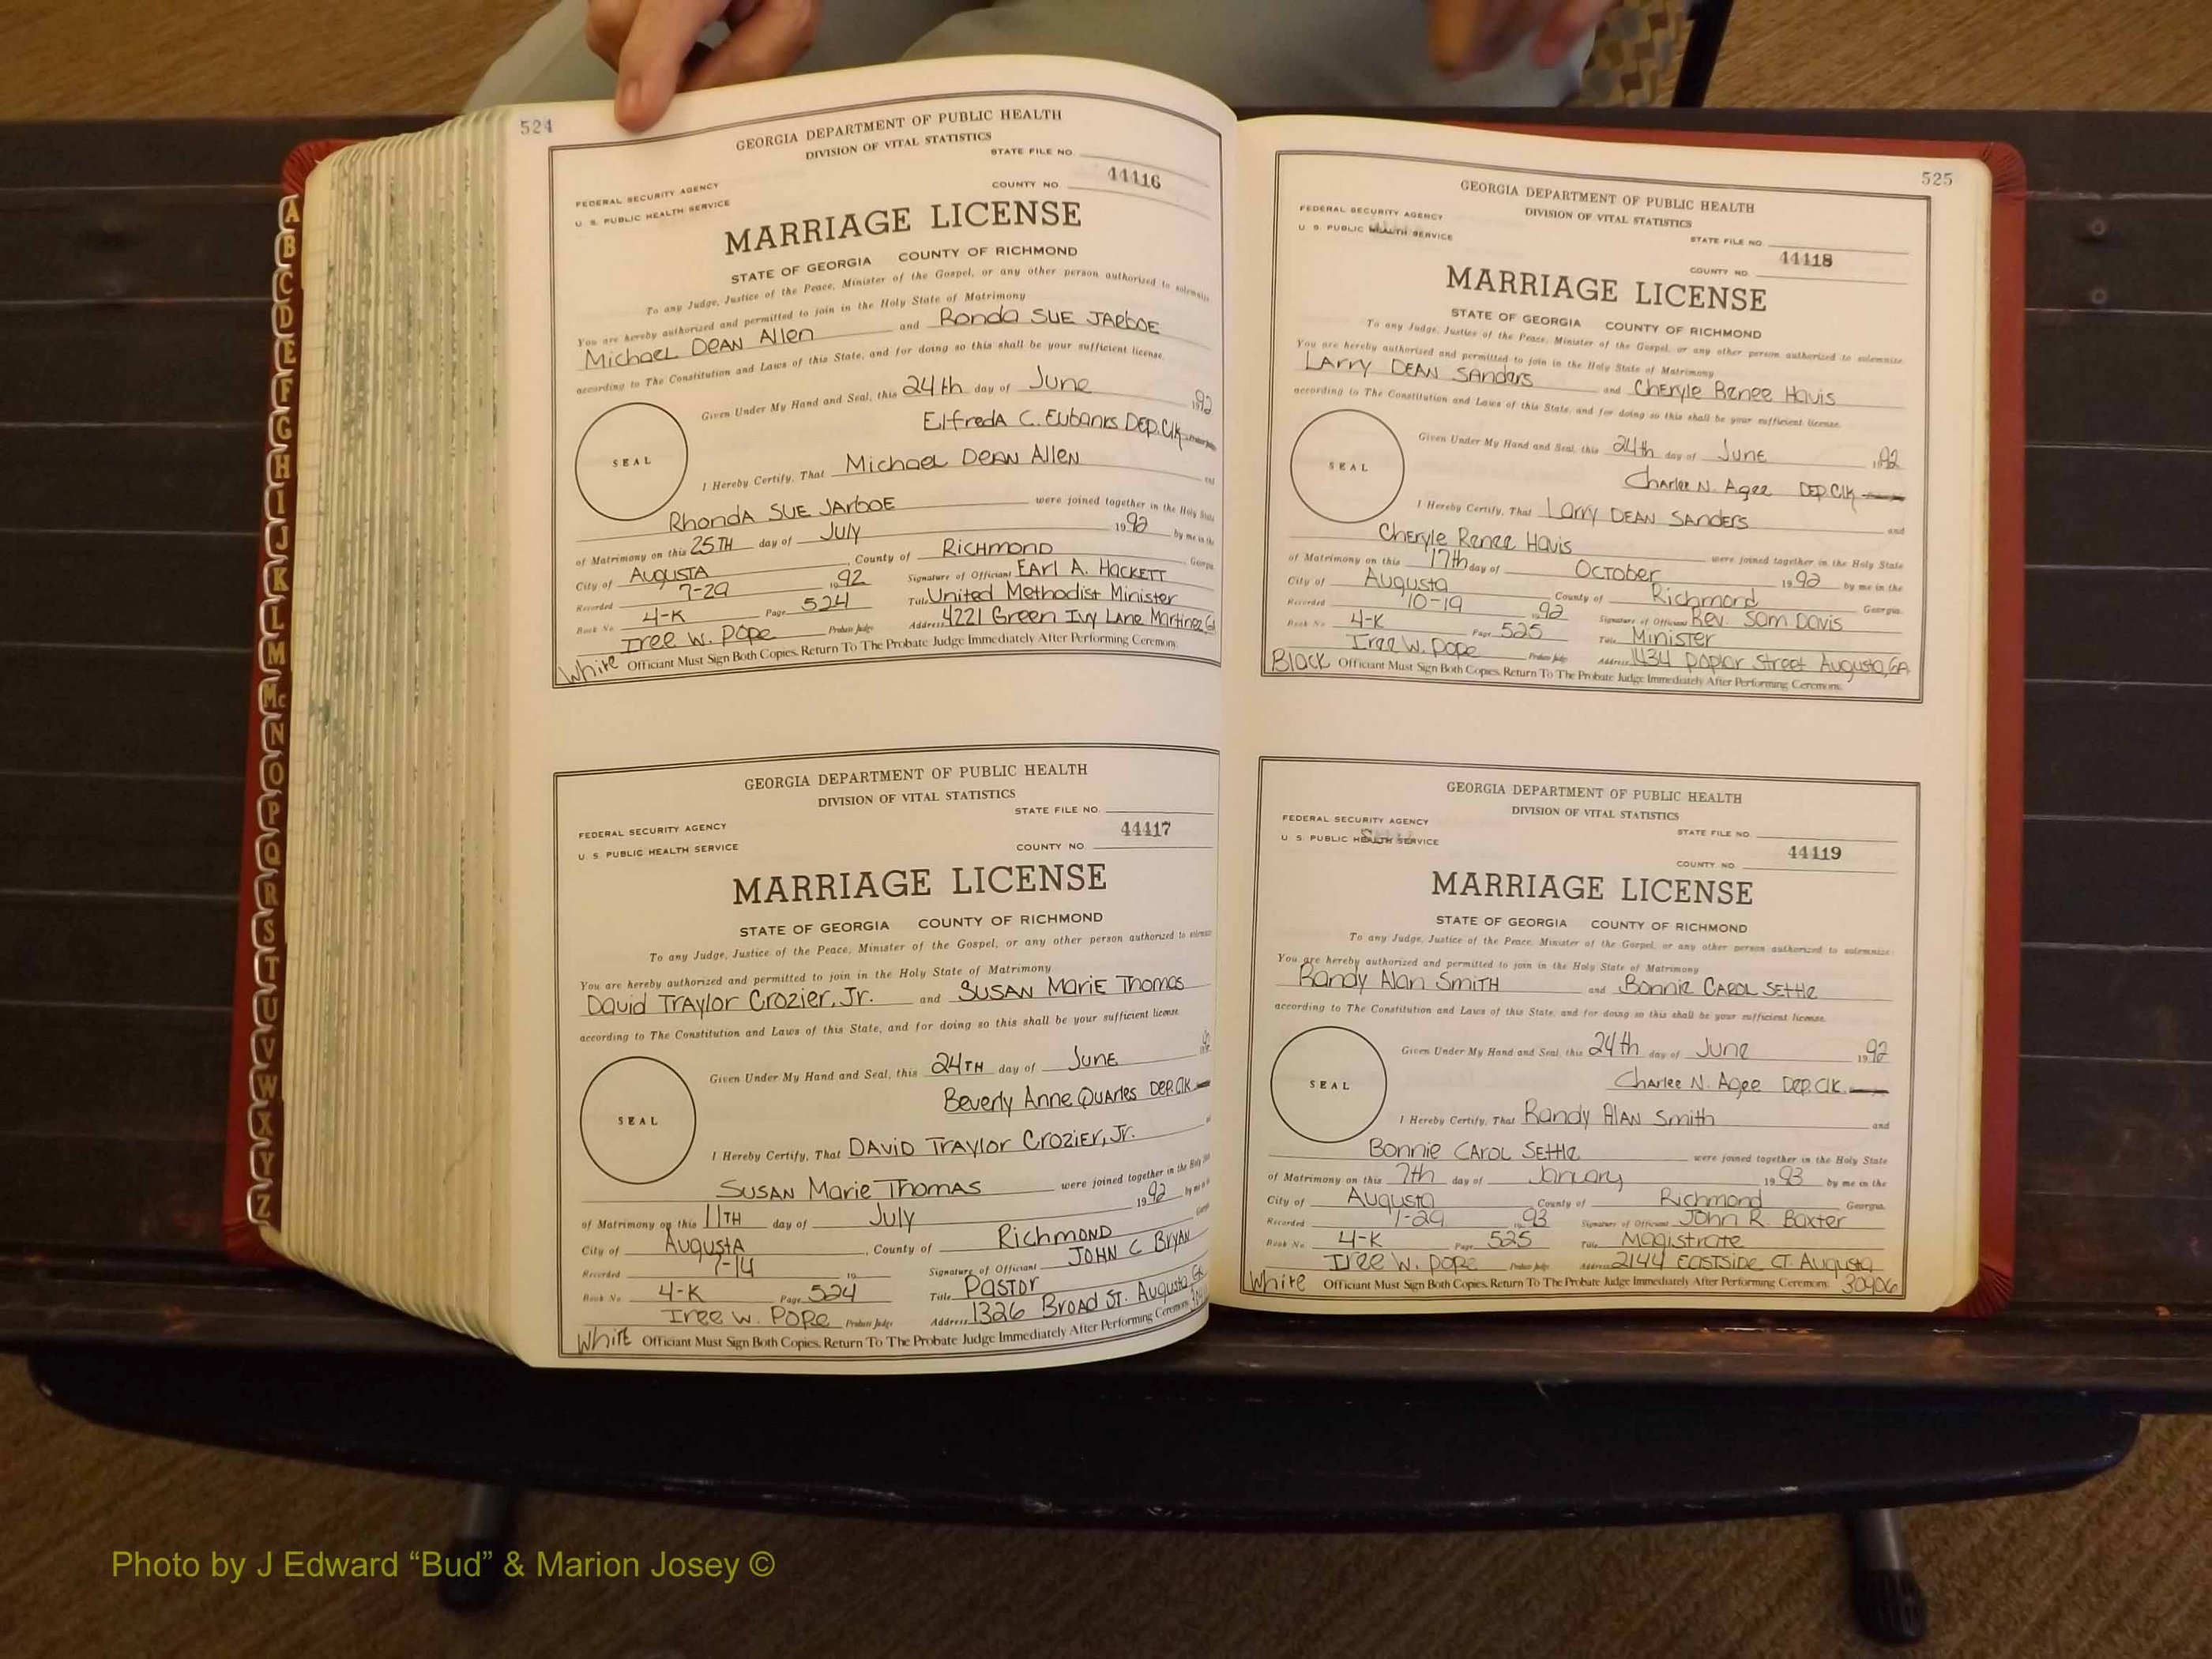 A
B
C
D
E
F
G
H
I
J
K
L
M
Mc
N
O
P
Q
R
S
T
U
V
W
X
Y
Z
524
GEORGIA DEPARTMENT OF PUBLIC HEALTH
DIVISION OF VITAL STATISTICS
STATE FILE NO.
FEDERAL SECURITY AGENCY
44116
U. S. PUBLIC HEALTH SERVICE
COUNTY NO
MARRIAGE LICENSE
STATE OF GEORGIA COUNTY OF RICHMOND
To any Judge, Justice of the Peace, Minister of the Gospel, or any other person authorized to solemnize
You are hereby authorized and permitted to join in the Holy State of Matrimony
Michael Dean Allen and Ronda Sue Jarboe
according to The Constitution and Laws of this State, and for doing so this shall be your sufficient license.
Given Under My Hand and Seal, this 24th day of June 1992
Elfreda C. Eubanks Dep. Clk
SEAL
I Hereby Certify, That Michael Dean Allen and
Rhonda Sue Jarboe were joined together in the Holy State
of Matrimony on this 25TH day of July 1992 by me in the
City of Augusta, County of Richmond Georgia
Recorded 7-29 1992 Signature of Official Earl A. Hackett
Book No 4-K Page 524 Title United Methodist Minister
Iree W. Pope Probate Judge Address 4221 Green Ivy Lane Martinez Ga
White Officiant Must Sign Both Copies. Return To The Probate Judge Immediately After Performing Ceremony.
GEORGIA DEPARTMENT OF PUBLIC HEALTH
DIVISION OF VITAL STATISTICS
STATE FILE NO.
FEDERAL SECURITY AGENCY
44117
U. S. PUBLIC HEALTH SERVICE
COUNTY NO
MARRIAGE LICENSE
STATE OF GEORGIA COUNTY OF RICHMOND
To any Judge, Justice of the Peace, Minister of the Gospel, or any other person authorized to solemnize
You are hereby authorized and permitted to join in the Holy State of Matrimony
David Traylor Crozier, Jr. and Susan Marie Thomas
according to The Constitution and Laws of this State, and for doing so this shall be your sufficient license.
Given Under My Hand and Seal, this 24TH day of June
Beverly Anne Quarles Dep. Clk
SEAL
I Hereby Certify, That David Traylor Crozier, Jr.
Susan Marie Thomas were joined together in the Holy State
of Matrimony on this 11TH day of July 1992 by me in
City of Augusta, County of Richmond Georgia
Recorded 7-14 19 Signature of Official John C Bryan
Book No 4-K Page 524 Title Pastor
Iree W. Pope Probate Judge Address 1326 Broad St. Augusta Ga
White Officiant Must Sign Both Copies. Return To The Probate Judge Immediately After Performing Ceremony.
525
GEORGIA DEPARTMENT OF PUBLIC HEALTH
DIVISION OF VITAL STATISTICS
FEDERAL SECURITY AGENCY
STATE FILE NO.
U. S. PUBLIC HEALTH SERVICE
44118
COUNTY NO
MARRIAGE LICENSE
STATE OF GEORGIA COUNTY OF RICHMOND
To any Judge, Justices of the Peace, Minister of the Gospel, or any other person authorized to solemnize:
You are hereby authorized and permitted to join in the Holy State of Matrimony
Larry Dean Sanders and Cheryle Renee Havis
according to The Constitution and Laws of this State, and for doing so this shall be your sufficient license.
Given Under My Hand and Seal, this 24th day of June 1992
Charlee N. Agee Dep. Clk
SEAL
I Hereby Certify, That Larry Dean Sanders and
Cheryle Renee Havis were joined together in the Holy State
of Matrimony on this 17th day of October 1992 by me in the
City of Augusta County of Richmond Georgia.
Recorded 10-19 1992 Signature of Official Rev. Sam Davis
Book No 4-K Page 525 Title Minister
Iree W. Pope Probate Judge Address 1434 Poplar Street Augusta, GA
Black Officiant Must Sign Both Copies. Return To The Probate Judge Immediately After Performing Ceremony.
GEORGIA DEPARTMENT OF PUBLIC HEALTH
DIVISION OF VITAL STATISTICS
FEDERAL SECURITY AGENCY
STATE FILE NO
U. S. PUBLIC HEALTH SERVICE
44119
COUNTY NO.
MARRIAGE LICENSE
STATE OF GEORGIA COUNTY OF RICHMOND
To any Judge, Justice of the Peace, Minister of the Gospel, or any other person authorized to solemnize:
You are hereby authorized and permitted to join in the Holy State of Matrimony
Randy Alan Smith and Bonnie Carol Settle
according to The Constitution and Laws of this State, and for doing so this shall be your sufficient license.
Given Under My Hand and Seal, this 24th day of June 1992
Charlee N. Agee Dep. Clk.
SEAL
I Hereby Certify, That Randy Alan Smith and
Bonnie Carol Settle were joined together in the Holy State
of Matrimony on this 7th day of January 1993 by me in the
City of Augusta County of Richmond Georgia.
Recorded 1-29 1993 Signature of Official John R. Baxter
Book No 4-K Page 525 Title Magistrate
Iree W. Pope Probate Judge Address 2144 Eastside Ct. Augusta
White Officiant Must Sign Both Copies. Return To The Probate Judge Immediately After Performing Ceremony. 30906
Photo by J Edward “Bud” & Marion Josey ©